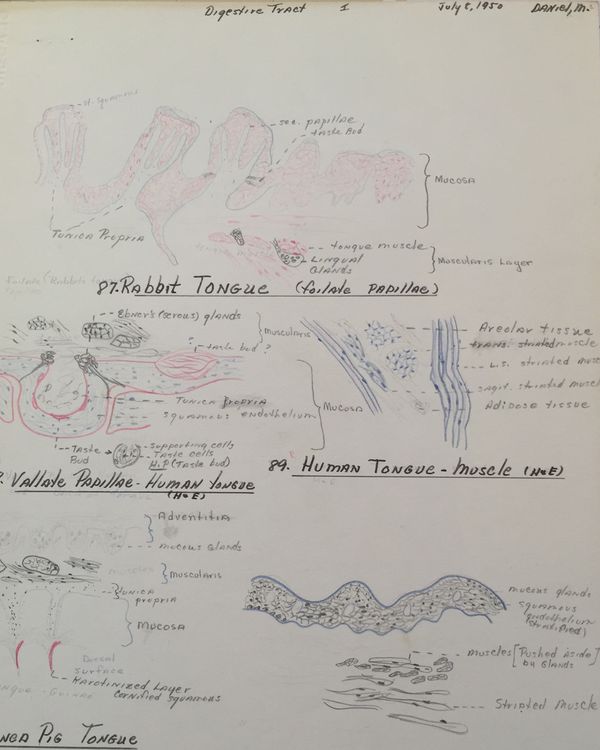 Digestive Tract I July 8, 1950 Daniel, M.
st. squamous
sec. papillae
taste Bud
Mucosa
Tunica Propria
tongue muscle
Lingual
Glands
Muscularis Layer
87. Rabbit Tongue (foliate papillae)
Ebner's (serous) glands
Muscularis
taste bud ?
Tunica propria
squamous endothelium
Mucosa
Taste
Bud
Supporting cells
Taste cells
H.P (Taste bud)
Vallate Papillae - Human tongue
(H&E)
Areolar tissue
trans. striated muscle
L.S. striated musc
sagit. striated muscl
Adidose tissue
89. Human Tongue - Muscle (H&E)
Adventitia
mucous glands
muscularis
Tunica
propria
Mucosa
Dorsal
surface
Karotinized Layer
Cornified squamous
Pig Tongue
mucous glands
squamous
Endothelium
stratified)
muscles [Pushed Aside]
by Glands
Striated Muscle